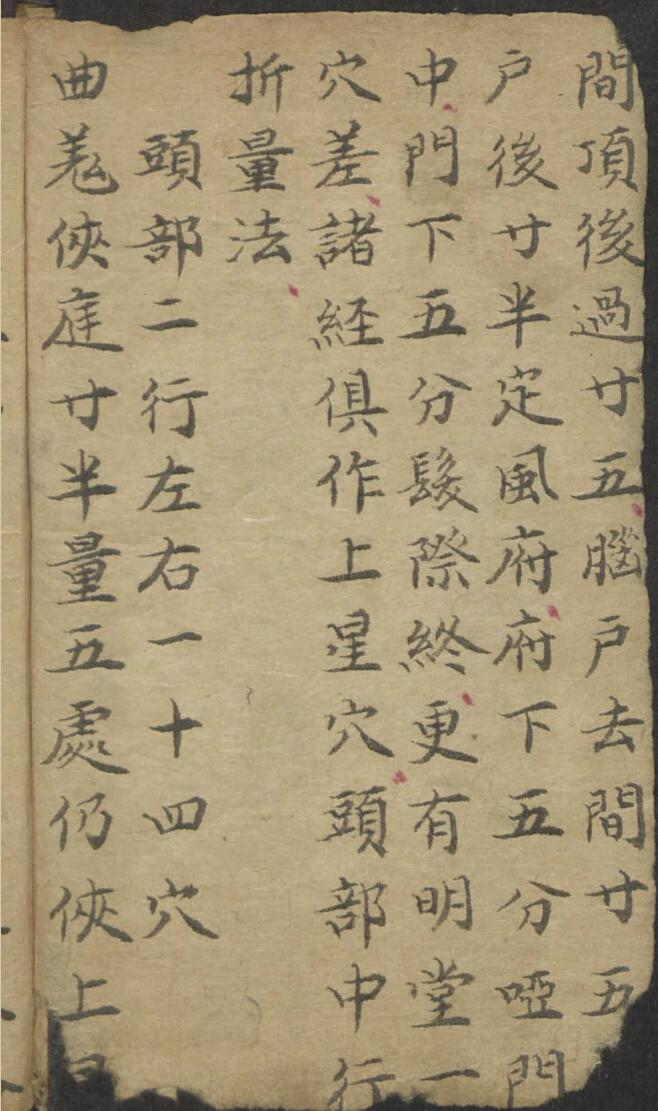 間頂後過寸五腦戶去間寸五
戶後寸半定風府府下五分啞門
中門下五分髮際終更有明堂一
穴差諸経俱作上星穴頭部中行
折量法
頭部二行左右一十四穴
曲羗俠庭寸半量五處仍俠上